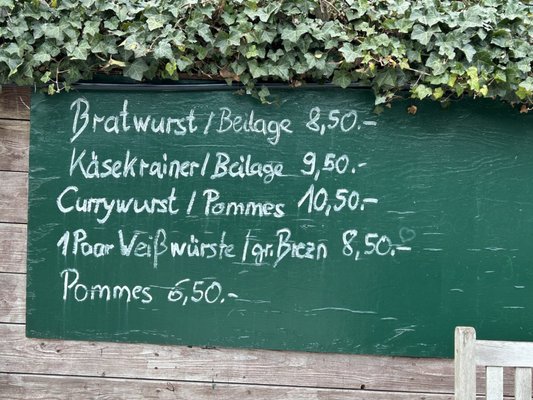 Bratwurst / Beilage 8,50.-
Käsekrainer / Beilage 9,50.-
Currywurst / Pommes 10,50.-
1 Paar Weißwürste / gr. Brezn 8,50.-
Pommes 6,50.-